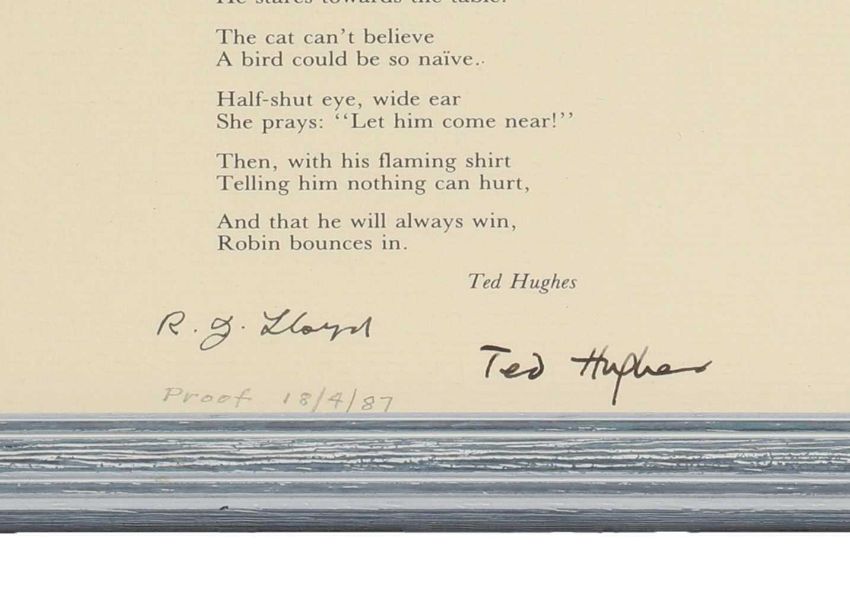 He stares towards the table.
The cat can't believe
A bird could be so naïve.
Half-shut eye, wide ear
She prays: ‘‘Let him come near!’’
Then, with his flaming shirt
Telling him nothing can hurt,
And that he will always win,
Robin bounces in.
Ted Hughes
R. J. Lloyd
Ted Hughes
Proof 18/4/87